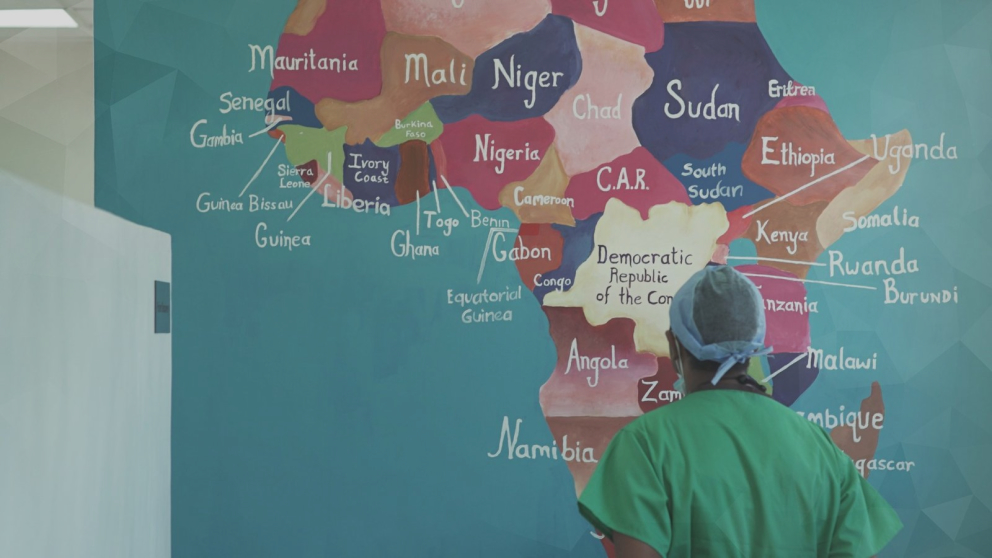 Mauritania
Mali
Niger
Chad
Sudan
Eritrea
Senegal
Gambia
Burkina
Faso
Nigeria
Ethiopia
Uganda
Guinea Bissau
Sierra
Leone
Ivory
Coast
Liberia
Guinea
Ghana
Togo
Benin
Cameroon
C.A.R.
South
Sudan
Somalia
Kenya
Gabon
Congo
Equatorial
Guinea
Democratic
Republic
of the Con
Rwanda
Burundi
anzania
Angola
Malawi
Zam
mbique
Namibia
gascar